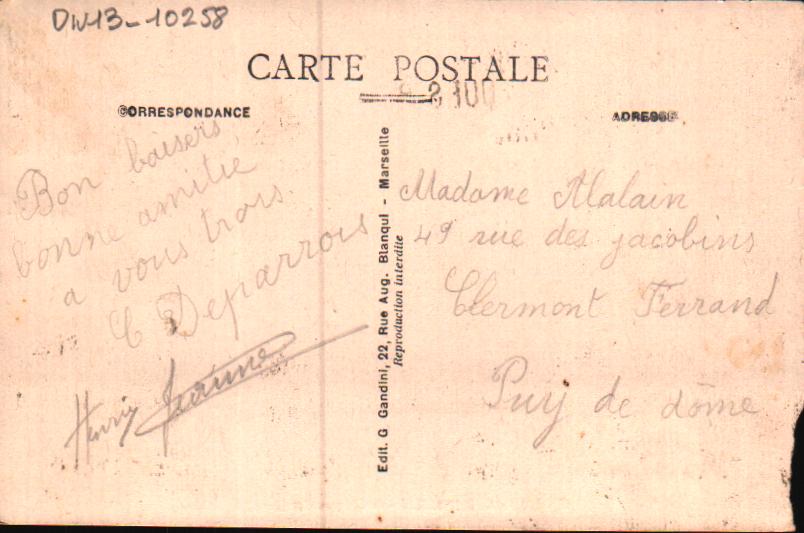 DIV13-10258
CARTE POSTALE
2100
CORRESPONDANCE
ADRESSE
Bon baisers
bonne amitié
a vous trois
C Deparrois
Henry Jeanne
Edit. G Gandini, 22, Rue Aug. Blanqui - Marseille
Reproduction interdite
Madame Alalain
49 rue des jacobins
Clermont Ferrand
Puy de dôme